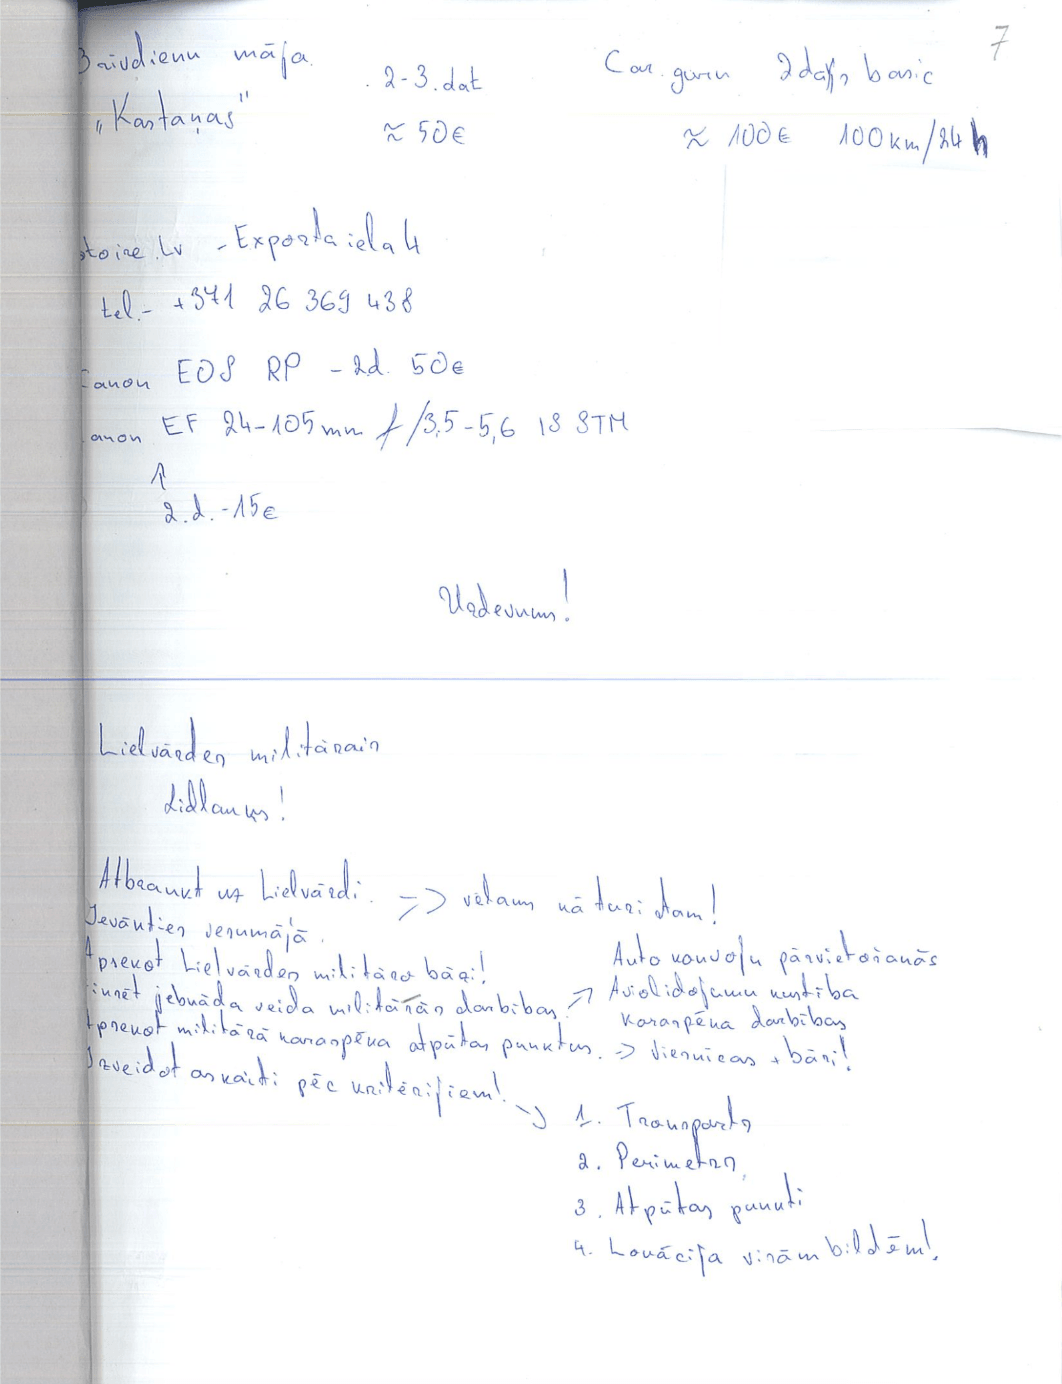 7
Brīvdienu māja. 2-3. dat Car. guru 2 days basic
"Kastaņas" ≈ 50€ ≈ 100€ 100km/24h
stoire.lv - Exporta iela 4
tel.- +371 26 369 438
Canon EOS RP - 2d. 50€
Canon EF 24-105mm f/3,5-5,6 IS STM
↑
2.d. -15€
Uzdevums!
Lielvārdes militārais
Lidlauks!
Atbraukt uz Lielvārdi. => vēlams kā turistam!
Ievākties Jerumājā.
Apsekot Lielvārdes militāro bāzi!
Auto konvoju pārvietošanās
Fiksēt jebkāda veida militārās darbības. => Aviolidojumu kustība
Karaspēka darbības
Apsekot militārā karaspēka atpūtas punktus. => Viesnīcas + bāri!
Izveidot atskaiti pēc kritērijiem! => 1. Transports
2. Perimetrs
3. Atpūtas punkti
4. Lokācija visām bildēm!